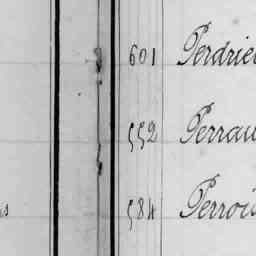 601 Perdrie
552 Perrau
584 Perroi